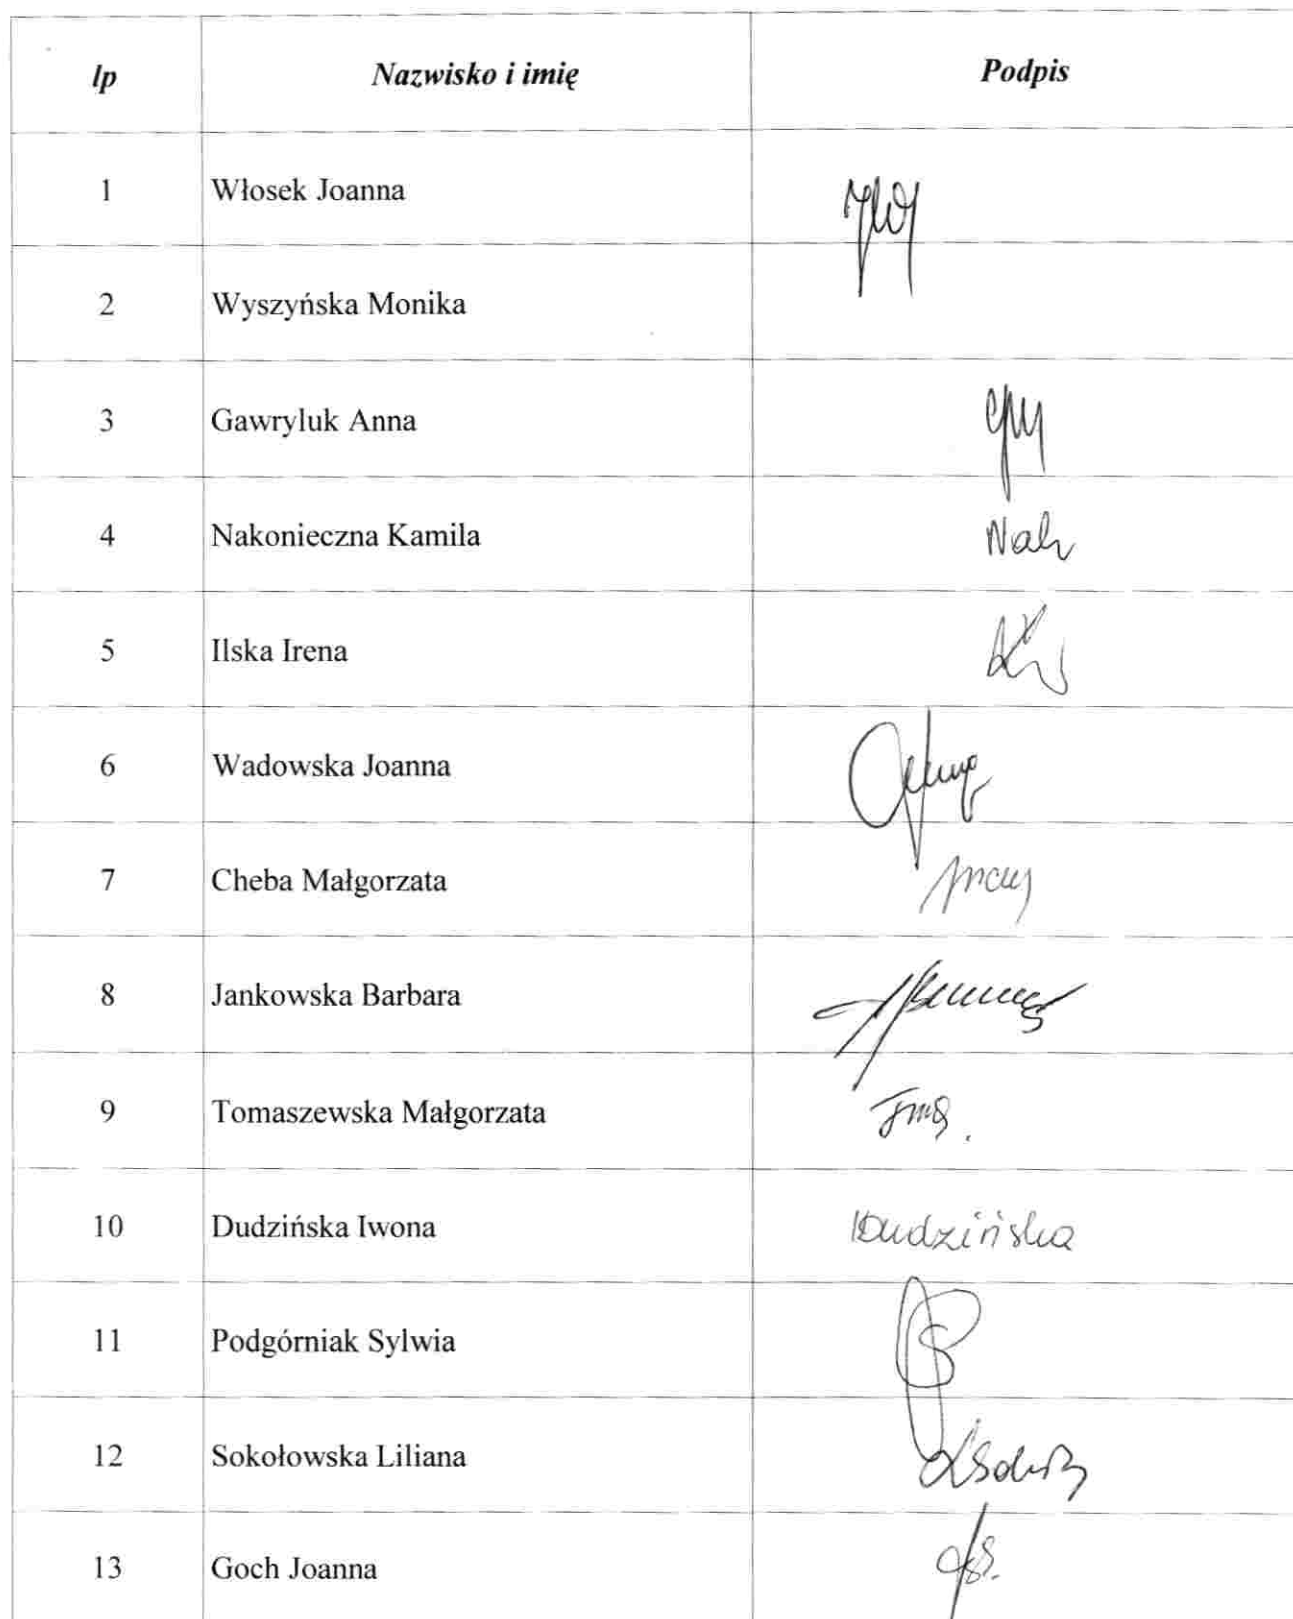 lp Nazwisko i imię Podpis
1 Włosek Joanna
2 Wyszyńska Monika
3 Gawryluk Anna
4 Nakonieczna Kamila
5 Ilska Irena
6 Wadowska Joanna
7 Cheba Małgorzata
8 Jankowska Barbara
9 Tomaszewska Małgorzata
10 Dudzińska Iwona IDudzińska
11 Podgórniak Sylwia
12 Sokołowska Liliana
13 Goch Joanna